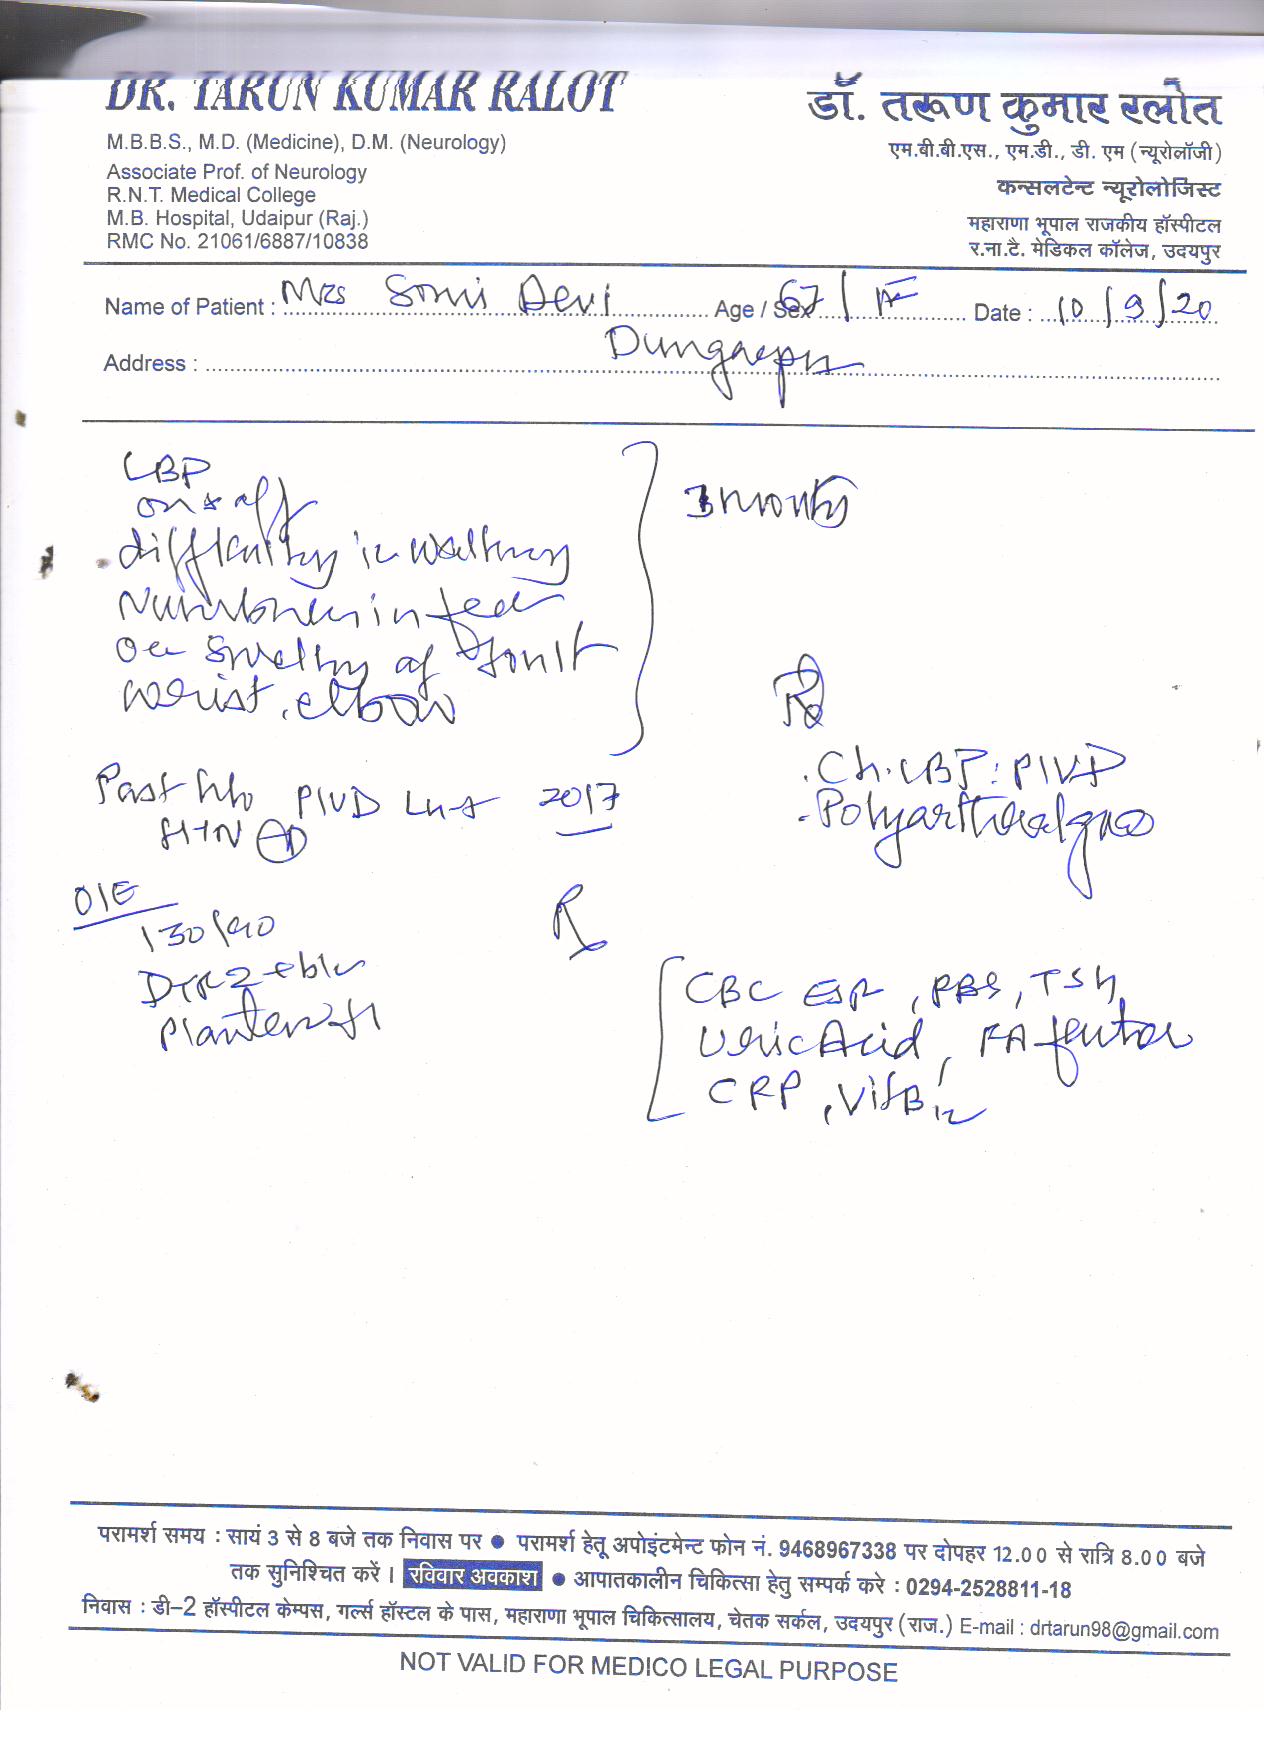 DR. TARUN KUMAR RALOT
M.B.B.S., M.D. (Medicine), D.M. (Neurology)
Associate Prof. of Neurology
R.N.T. Medical College
M.B. Hospital, Udaipur (Raj.)
RMC No. 21061/6887/10838
डॉ. तरूण कुमार रलोत
एम.बी.बी.एस., एम.डी., डी. एम (न्यूरोलॉजी)
कन्सलटेन्ट न्यूरोलोजिस्ट
महाराणा भूपाल राजकीय हॉस्पीटल
र.ना.टै. मेडिकल कॉलेज, उदयपुर
Name of Patient : Mrs Devi Age / Sex 67/F Date : 10/9/20
Address :
LBP
on & off
difficulty in walking
Numbness in feet
occ swelling of Joint
wrist, elbow
3 months
Past h/o PIVD 2017
HTN
O/E
130/90
DTR 2+
Ch. LBP : PIVD
Polyarthralgia
R
CBC ESR, PBS, TSH,
Uric Acid, RA factor
CRP, Vit B12
परामर्श समय : सायं 3 से 8 बजे तक निवास पर ● परामर्श हेतू अपोइंटमेन्ट फोन नं. 9468967338 पर दोपहर 12.00 से रात्रि 8.00 बजे
तक सुनिश्चित करें । रविवार अवकाश ● आपातकालीन चिकित्सा हेतु सम्पर्क करे : 0294-2528811-18
निवास : डी–2 हॉस्पीटल केम्पस, गर्ल्स हॉस्टल के पास, महाराणा भूपाल चिकित्सालय, चेतक सर्कल, उदयपुर (राज.) E-mail : drtarun98@gmail.com
NOT VALID FOR MEDICO LEGAL PURPOSE